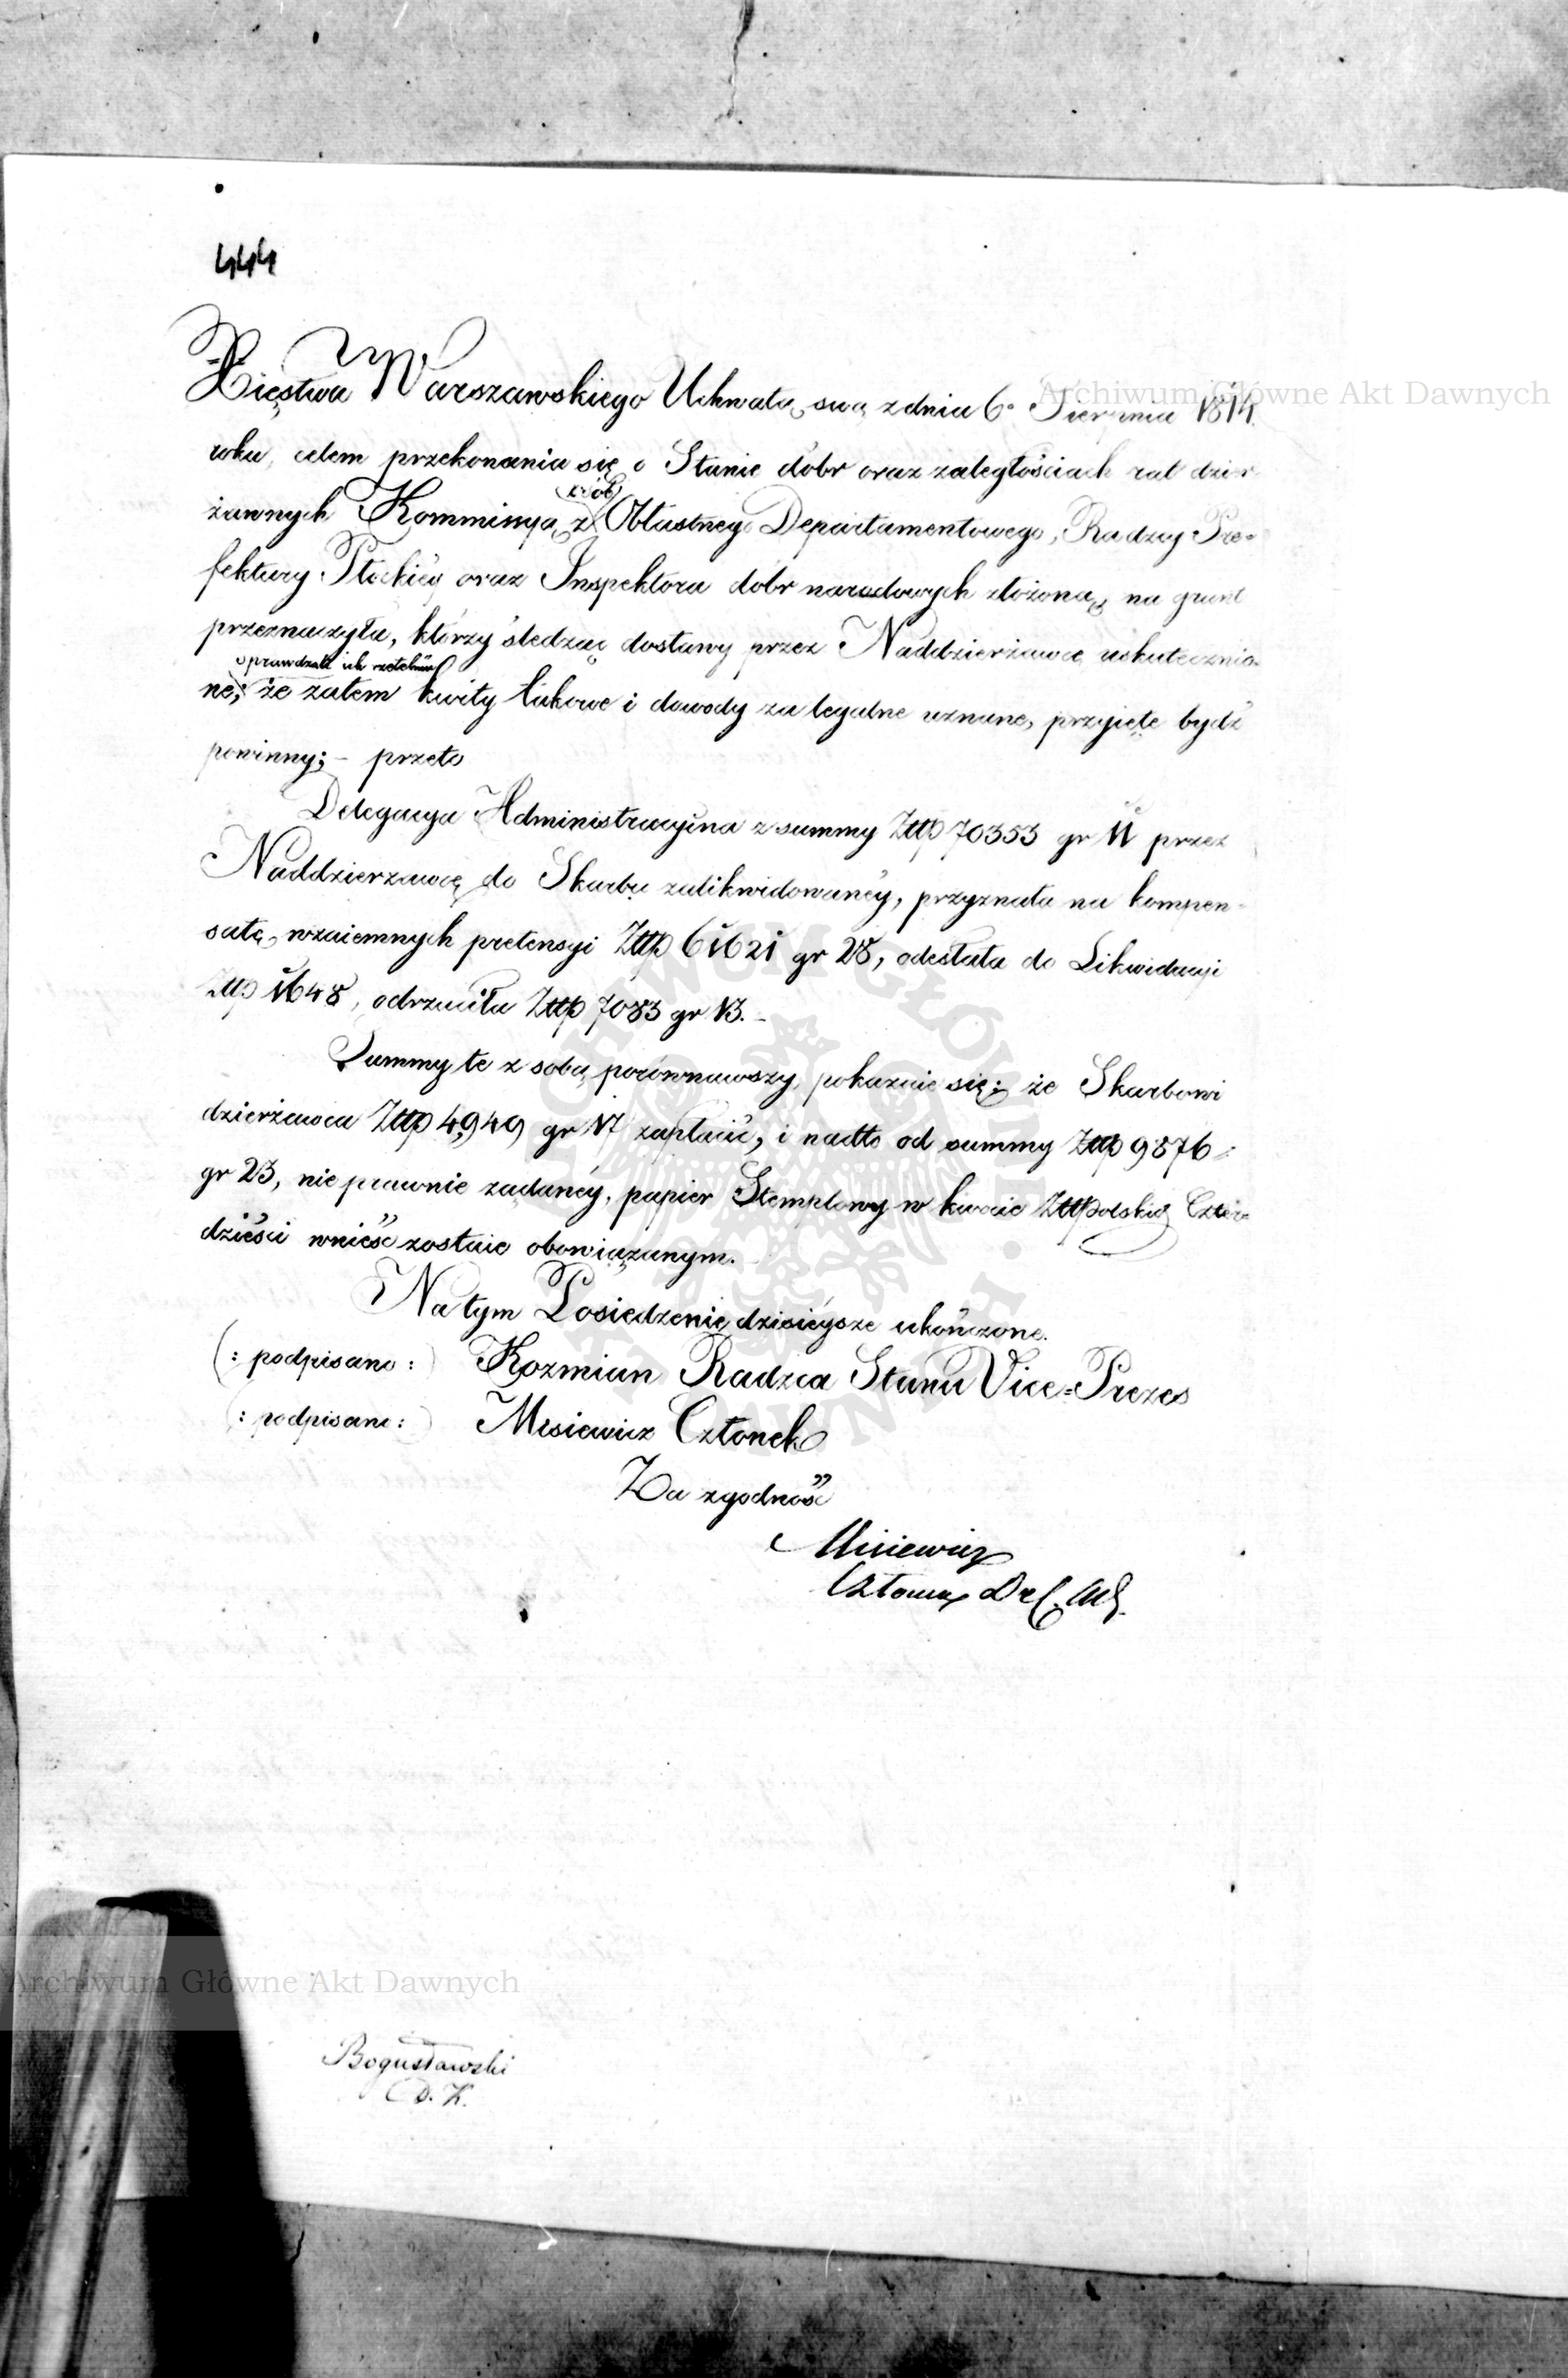 444
Xięstwa Warszawskiego Uchwałą swą z dnia 6º Sierpnia 1814.
roku, celem przekonania się o Stanie dóbr oraz zaległościach rat dzier-
żawnych Kommissyą z Obłastnego Departamentowego, Radzcy Pre=
fektury Płockiey oraz Inspektora dóbr narodowych złożoną, na grunt
przeznaczyła, którzy śledząc dostawy przez Naddzierżawcę uskutecznio=
sprawdzali ich rzetelność
ne; że zatem kwity takowe i dowody za legalne uznane, przyięte bydź
powinny; – przeto
Delegacya Administracyina z summy Złłp 70353 gr 11 przez
Naddzierzawcę do Skarbu zalikwidowaney, przyznała na kompen=
satę wzaiemnych pretensyi Złłp 61621 gr 28, odesłała do Likwidacyi
Złłp 1648, odrzuciła Złłp 7083 gr 13. –
Summy te z sobą porównawszy, pokazuie się; że Skarbowi
dzierżawca Złłp 4,949 gr 17 zapłacić, i nadto od summy Złłp 9876
gr 23, nie prawnie żądaney, papier Stemplowy w kwocie Złłpolskich Czter=
dzieści wnieść zostaie obowiązanym.
Na tym Posiedzenie dzisieysze ukończone.
(: podpisano :) Kozmian Radzca Stanu Vice=Prezes
(: podpisano :) Misiewicz Członek
Za zgodność
Misiewicz
Członek Del. Ad.
Bogusławski
D. K.
Archiwum Główne Akt Dawnych
Archiwum Główne Akt Dawnych